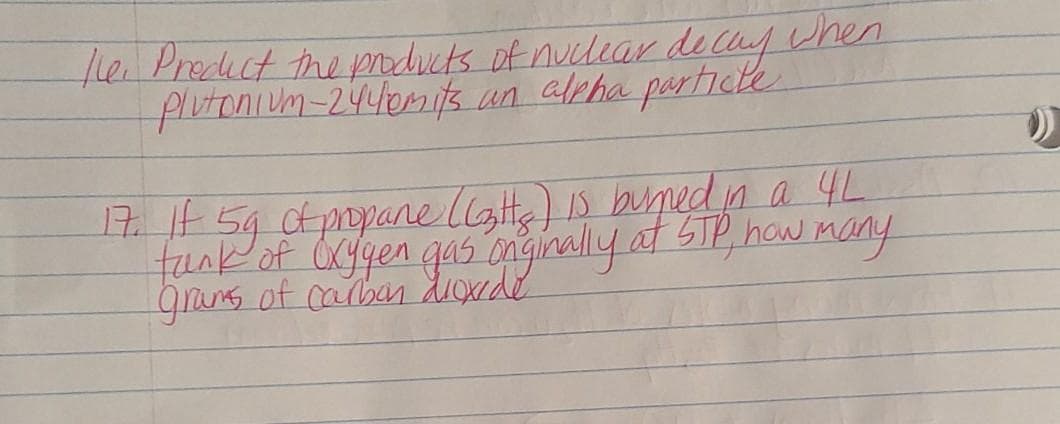 16. Predict the products of nuclear decay when
plutonium-244 emits an alpha particle
17. If 5g of propane (C3H8) is burned in a 4L
tank of oxygen gas originally at STP, how many
grams of carbon dioxide